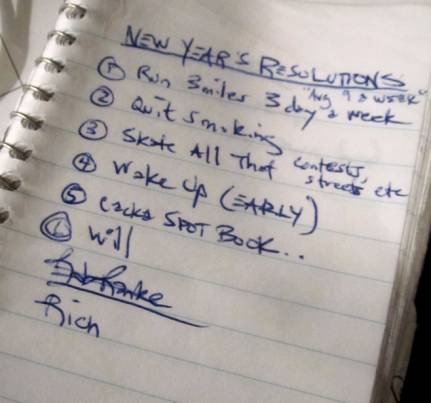 NEW YEAR'S RESOLUTIONS
① Run 3miles 3 day a week "Avg 9 a week"
② Quit smoking
③ Skate All that contests, streets, etc
④ Wake up (EARLY)
⑤ SPOT BOOK..
⑥ Will
Rich